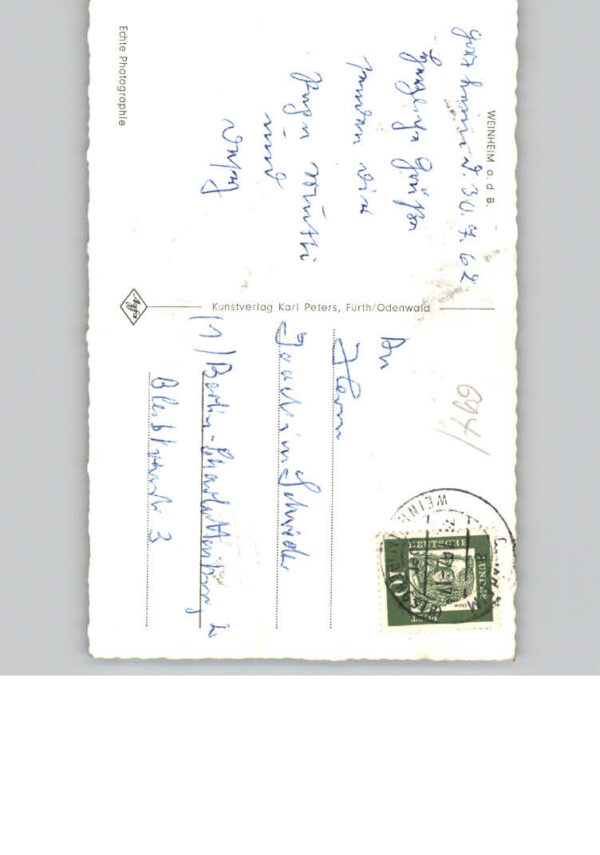 WEINHEIM a. d. B.
d. 30.7.62
Herzliche Grüße
senden dir
und
Echte Photographie
Agfa
Kunstverlag Karl Peters, Fürth/Odenwald
An
Herrn
Joachim Schröder
(1) Berlin-Charlottenburg 2
Bleibtreustr 3
694/
WEINHEIM
DEUTSCHE
BUNDESPOST
10